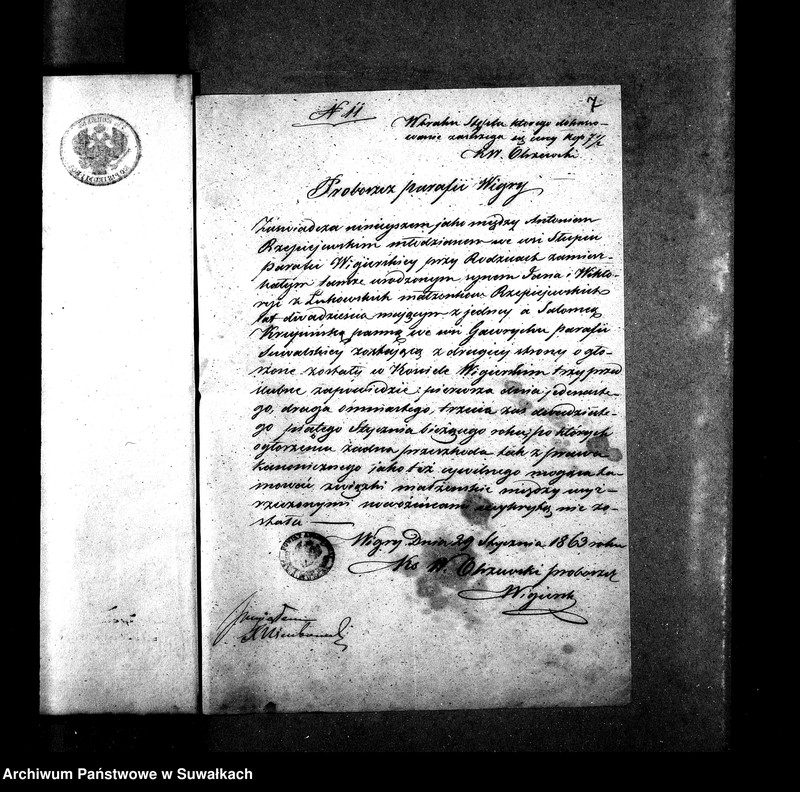 N 11
7
W braku Stępla którego dokaso-
wanie zastrzega się ceny kop 7 1/2
X W. Olszewski
Proboszcz parafii Wigry
Zaświadcza niniejszem jako między Antonim
Rzepiejewskim młodzianem we wsi Słupiu
Parafii Wigierskiej przy Rodzicach zamiesz-
kałym tamże urodzonym synem Jana i Wikto-
ryi z Lutowskich małżonków Rzepiejewskich
lat dwadzieścia mającym z jednej a Salomeą
panną we wsi Gawrychu parafii
Suwalskiej zostającą z drugiej strony ogło-
szone zostały w Kościele Wigierskim trzy przed
ślubne zapowiedzie: pierwsza dnia jedenaste-
go, druga ośmnastego, trzecia zaś dwudzieste-
go piątego Stycznia bieżącego roku, po których
ogłoszeniu żadna przeszkoda tak z prawa
kanonicznego jako też cywilnego mogąca ta-
mować związki małżeńskie między wyż-
rzeczonymi nowożeńcami odkrytą nie zo-
stała
Wigry Dnia 29 Stycznia 1863 roku
Xs W. Olszewski proboszcz
Wigiersk
Archiwum Państwowe w Suwałkach